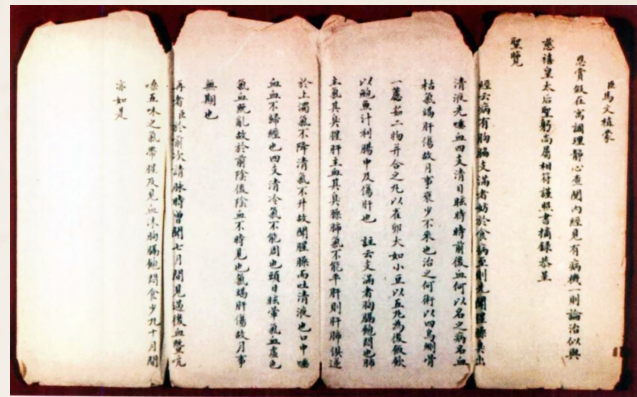 臣馬文植蒙
恩賞假在寓調理靜心查閱內經見有病機一則論治似與
慈禧皇太后聖躬尚屬相符謹照書摘錄恭呈
聖覽
經云病有胸脇支滿者妨於食病至則先聞腥臊臭出
清液先唾血四支清目眩時時前後血何以名之病名血
枯氣竭肝傷故月事衰少不來也治之何術以四烏鰂骨
一藘茹二物并合之丸以雀卵大如小豆以五丸為後飯飲
以鮑魚汁利腸中及傷肝也 註云支滿者胸膈飽悶也肺
主氣其臭腥肝主血其臭臊肺氣不能平肝則肝肺俱逆
於上濁氣不降清氣不升故聞腥臊而吐清液也口中唾
血血不歸經也四支清冷氣不能周也頭目眩暈氣血虛也
氣血既亂故於前陰後陰血不時見也氣竭肝傷故月事
無期也
再者臣於前次請脉時曾聞七月間見過後血
五味之氣帶腥及見血水胸膈飽悶食少九十月間
亦如是